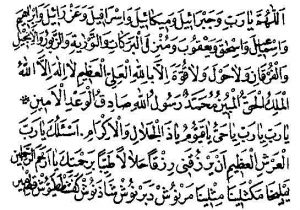 اَللّٰهُمَّ يَارَبِّ وَجَبْرَائِيلَ وَمِيكَائِيلَ وَاِسْرَافِيلَ وَعَزْرَائِيلَ وَاِبْرَاهِيمَ
وَاِسْمٰعِيلَ وَاِسْحٰقَ وَيَعْقُوبَ وَمُنْزِلَ الْبَرَكَاتِ وَالتَّوْرٰيةِ وَالزَّبُورِ وَالْاِنْجِيلِ
وَالْفُرْقَانِ وَلَاحَوْلَ وَلَاقُوَّةَ اِلَّا بِاللهِ الْعَلِيِّ الْعَظِيمِ لَا اِلٰهَ اِلَّا اللهُ
الْمَلِكُ الْحَقُّ الْمُبِينُ مُحَمَّدٌ رَسُولُ اللهِ صَادِقُ الْوَعْدِ الْاَمِينِ
يَارَبِّ يَارَبِّ يَاحَيُّ يَاقَيُّومُ يَاذَا الْجَلَالِ وَالْاِكْرَامِ اَسْئَلُكَ يَارَبَّ
الْعَرْشِ الْعَظِيمِ اَنْ تَرْزُقَنِي رِزْقًا حَلَالًا طَيِّبًا بِرَحْمَتِكَ يَا اَرْحَمَ الرَّاحِمِينَ
يَمْلِيخَا مَكْثَلِينَا مِثْلِينَا مَرْنُوشْ دَبَرْنُوشْ شَاذَنُوشْ كَفَشْطَطَيُوشْ